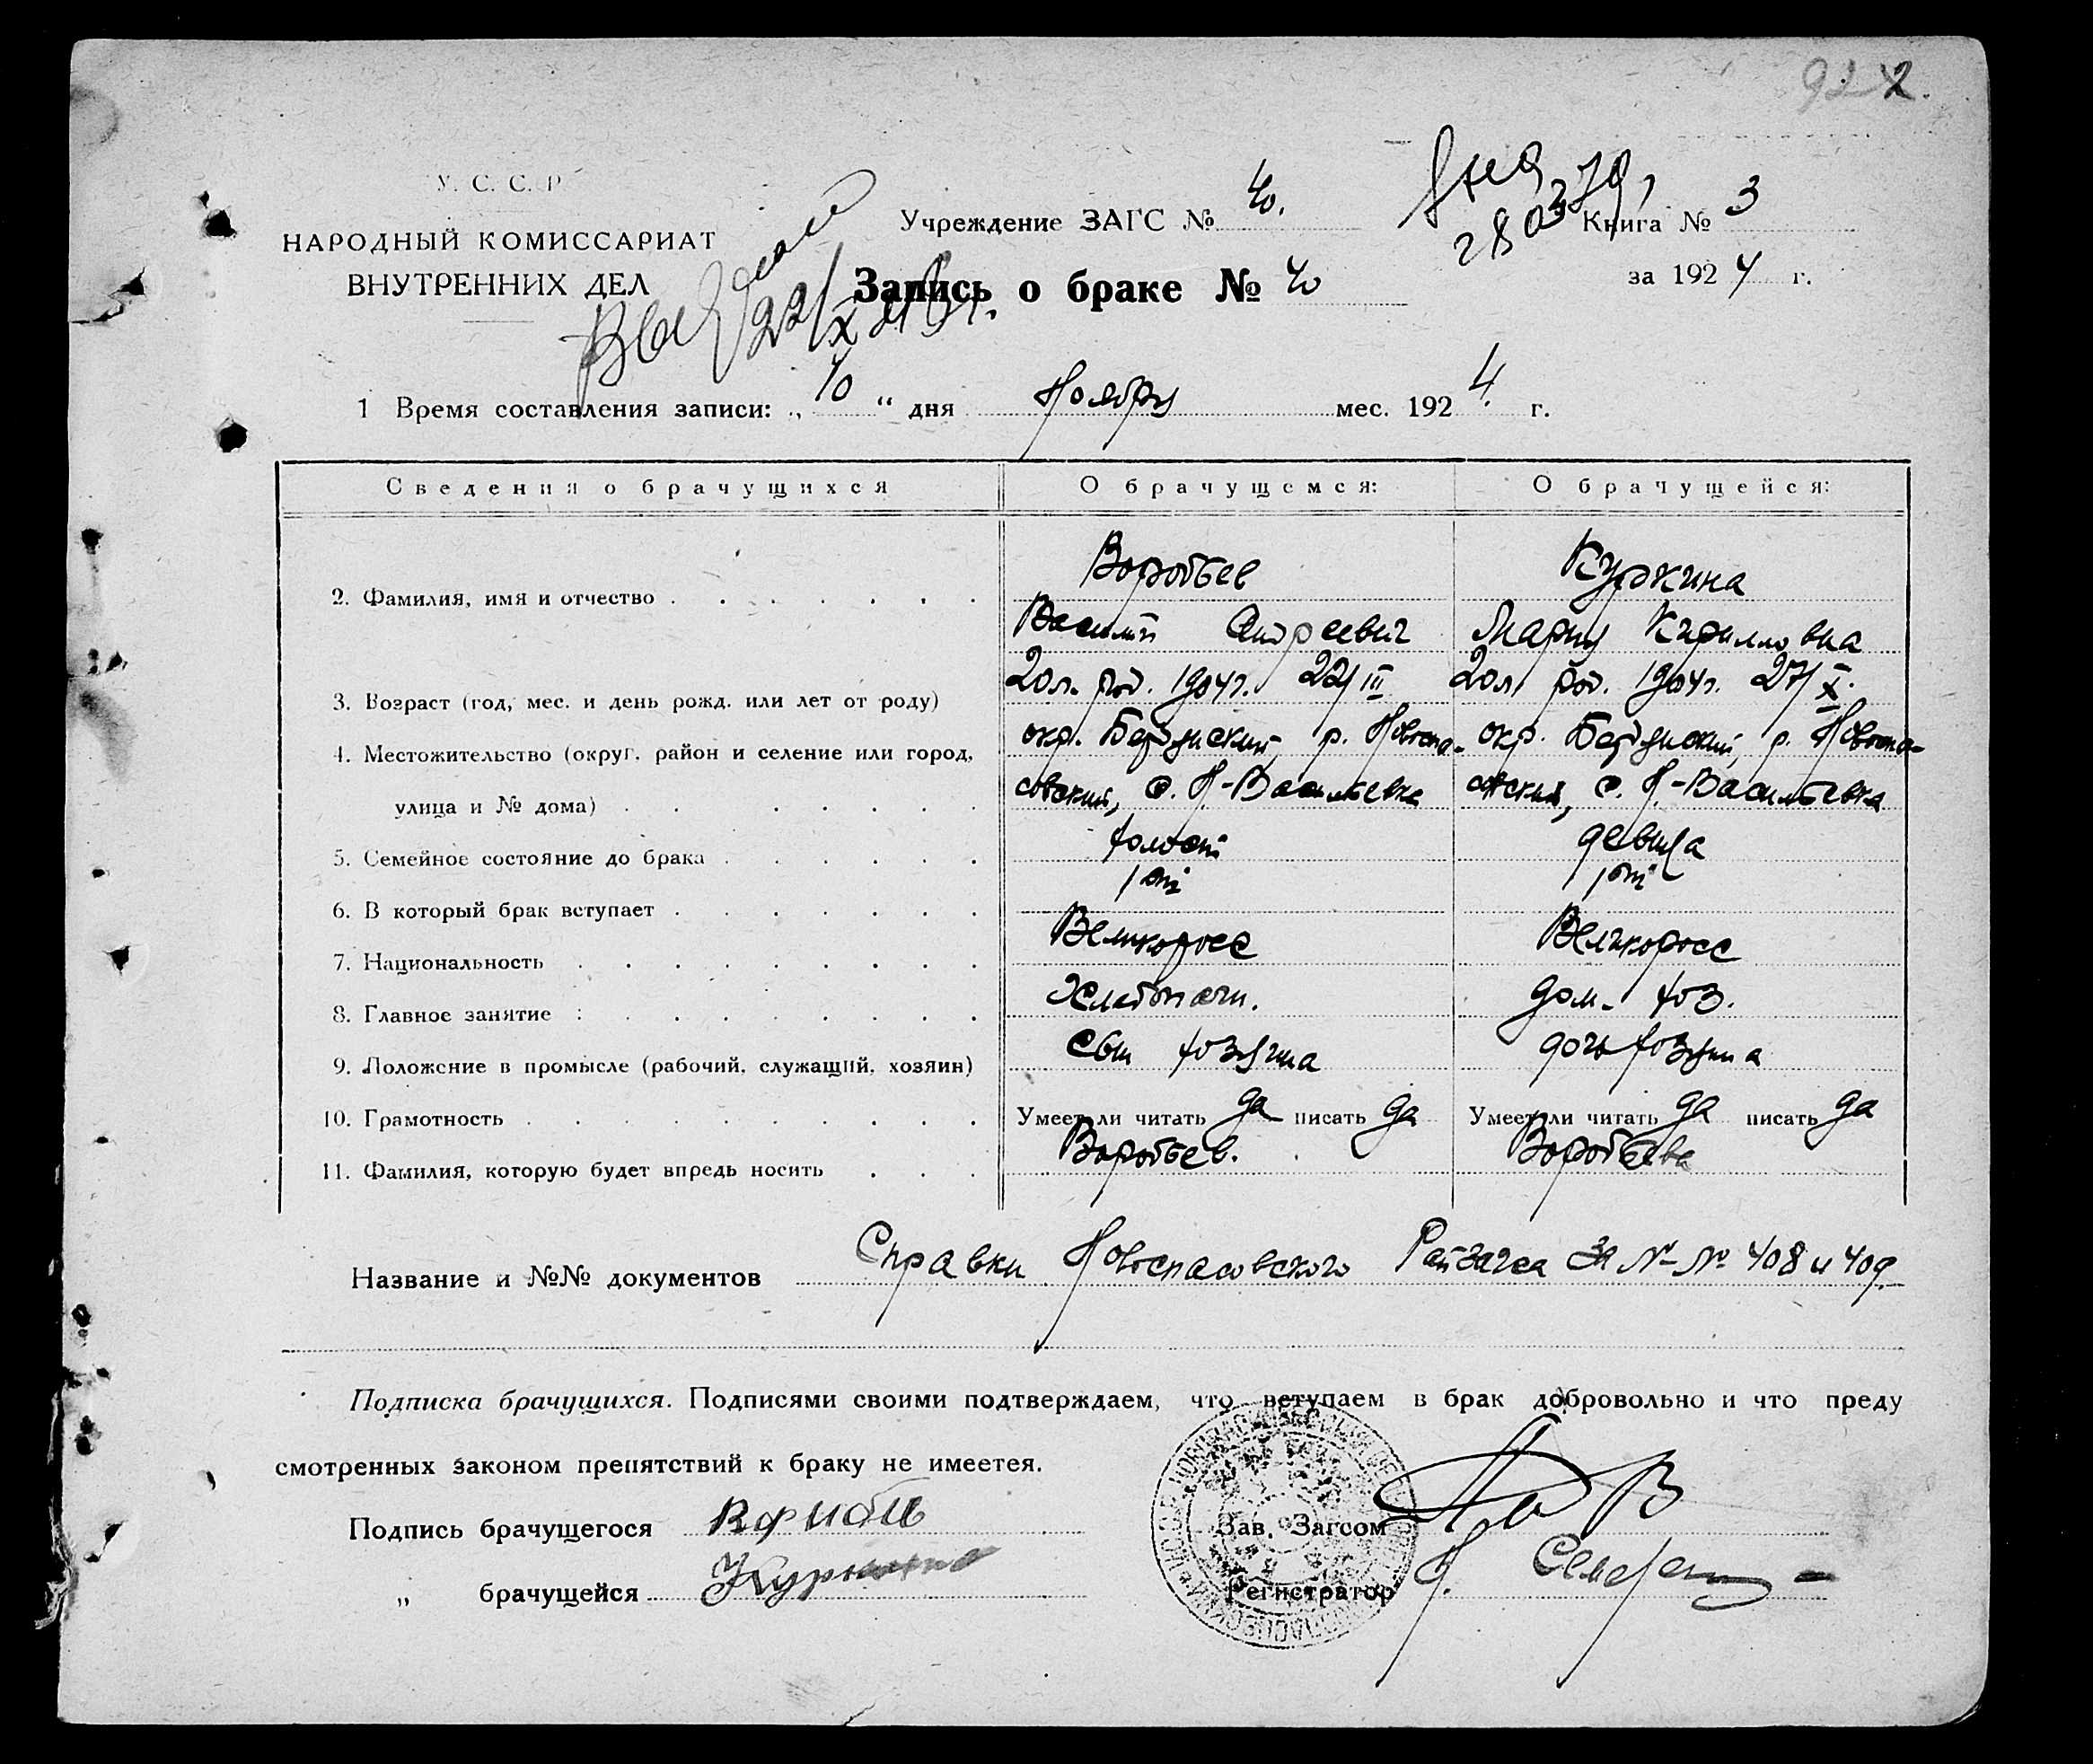 922.
У. С. С. Р
НАРОДНЫЙ КОМИССАРИАТ
ВНУТРЕННИХ ДЕЛ
Учреждение ЗАГС № 40.
Книга № 3
за 1924 г.
Запись о браке № 40
22/X
1 Время составления записи: „10“ дня Ноября мес. 1924. г.
Сведения о брачущихся О брачущемся: О брачущейся:
Воробьев Куркина
2. Фамилия, имя и отчество
Василий Андреевич Мария Кирилловна
3. Возраст (год, мес. и день рожд. или лет от роду) 20 л. род. 1904 г. 22/III 20 л. род. 1904 г. 27/X.
4. Местожительство (округ, район и селение или город, окр. Бердянский, р. Новоспа- окр. Бердянский, р. Новоспа-
улица и № дома) совский, с. Н-Васильевка совский, с. Н-Васильевка
5. Семейное состояние до брака холост девица
6. В который брак вступает 1 ый 1 ый
7. Национальность Великоросс Великоросс
8. Главное занятие Хлебопаш. дом. хоз.
9. Положение в промысле (рабочий, служащий, хозяин) сын хозяина дочь хозяина
10. Грамотность Умеет ли читать да писать да Умеет ли читать да писать да
11. Фамилия, которую будет впредь носить Воробьев. Воробьева
Название и №№ документов Справки Новоспасовского Райзагса за №-№ 408 и 409.
Подписка брачущихся. Подписями своими подтверждаем, что вступаем в брак добровольно и что преду
смотренных законом препятствий к браку не имеетея.
Подпись брачущегося
Зав. Загсом
„ брачущейся Куркина
Регистратор